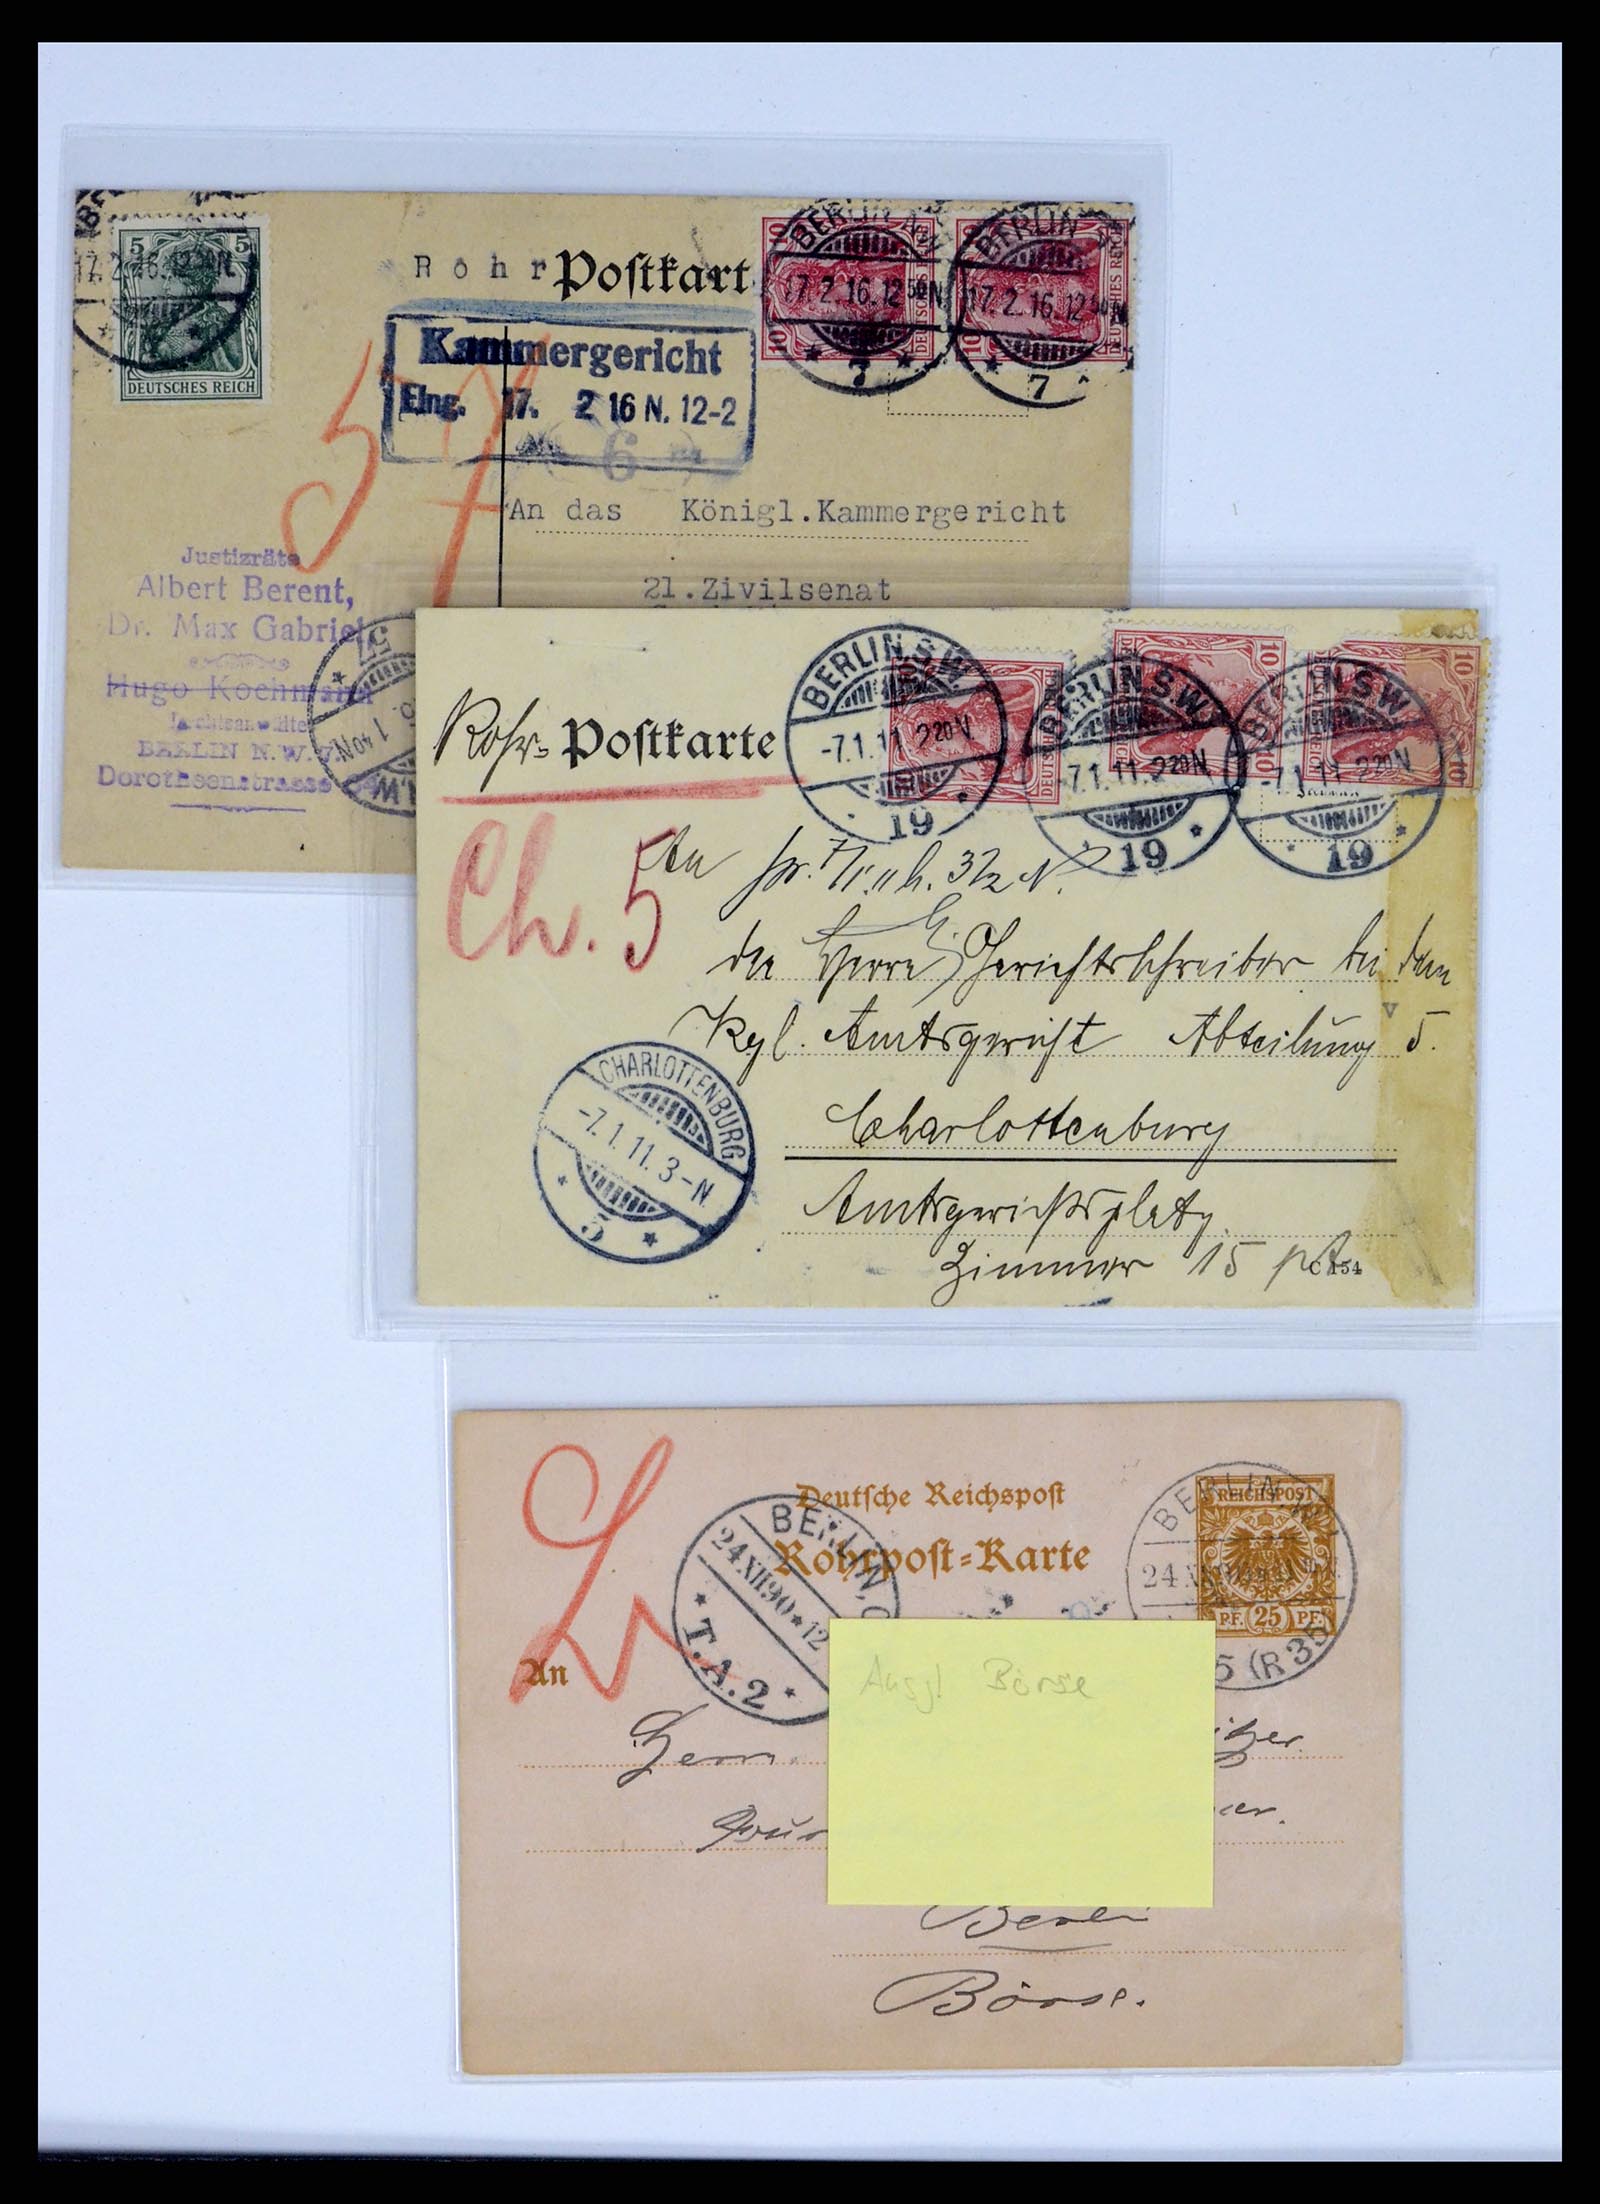 5 5
DEUTSCHES REICH
17.2.16.12 50 N.
Rohr Postkart
10
DEUTSCHES REICH
BERLIN N.W.
17.2.16.12 50 N
7
BERLIN
17.2.16.12 50 N
7
57
Kammergericht
Eing. 17. 2 16 N. 12-2
6
An das Königl.Kammergericht
21.Zivilsenat
Justizräte
Albert Berent,
Dr. Max Gabriel
Hugo Kochmann
BERLIN N.W.7.
Dorotheenstrasse
1 40 N
Rohr- Postkarte
BERLIN S.W.
-7.1.11.2 20 N
19
BERLIN S.W.
-7.1.11.2 20 N
19
BERLIN S.W.
-7.1.11.2 20 N
19
10
Ch. 5
An
Gerichtsschreiber bei dem
Kgl. Amtsgericht Abteilung 5.
Charlottenburg
Amtsgerichtsplatz
Zimmer 15
C 154
CHARLOTTENBURG
-7.1.11.3-N
5
Deutsche Reichspost
Rohrpost-Karte
REICHSPOST
PF. 25 PF.
BERLIN, C
24 XII 90 * 12
* T.A.2 *
BERLIN W
24 XII
5 (R 35)
An
Herrn
Ausgl Börse
Berlin
Börse.